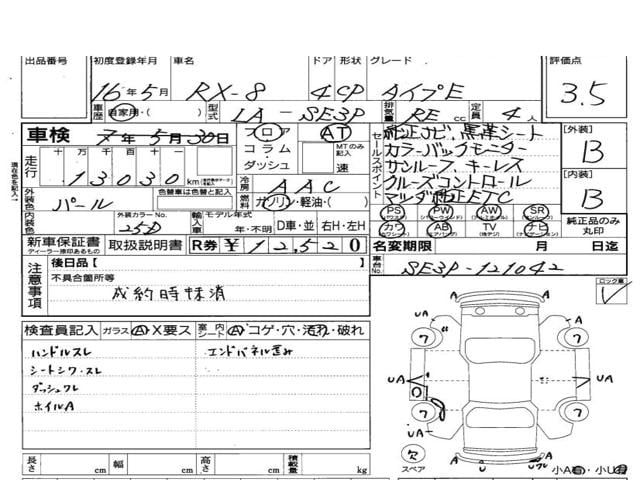 出品番号 初度登録年月 車名 ドア 形状 グレード 評価点
16年5月 RX-8 4 CP タイプE 3.5
車歴 自家用・( ) 型式 LA-SE3P 排気量 RE cc 定員 4人
車検 7年5月30日 フロア AT セールスポイント 純正ナビ、黒革シート 【外装】
走行 十万千百十 コラム MTのみ記入 カラーバックモニター B
13030 km ダッシュ 速 サンルーフ、キーレス
外装色 パール 色替車は色替と記入 冷房 AAC クルーズコントロール 【内装】
燃料 ガソリン・軽油・( ) マツダ純正ETC B
内装色 外装カラーNo. 25D 輸入車 モデル年式 年・不明 D車・並 右H・左H PS PW AW SR
カワ AB TV ナビ 純正品のみ丸印
新車保証書 取扱説明書 R券 ¥12,520 名変期限 月 日迄
ディーラー捺印あるもの
注意事項 後日品【 】 車台No. SE3P-121042
不具合箇所等 ロック車
成約時抹消 レ
検査員記入 ガラス A X要ス 室内 シート A コゲ・穴・汚れ・破れ
ハンドルスレ エンドパネル歪み
シートシワ・スレ
ダッシュワレ
ホイルA
A A
uA A
ワ ワ
uA uA
ワ ワ
uA A
欠 スペア A U A
長さ cm 幅 cm 高さ cm 積載量 kg 小A有・小U有
現在色を記入↑